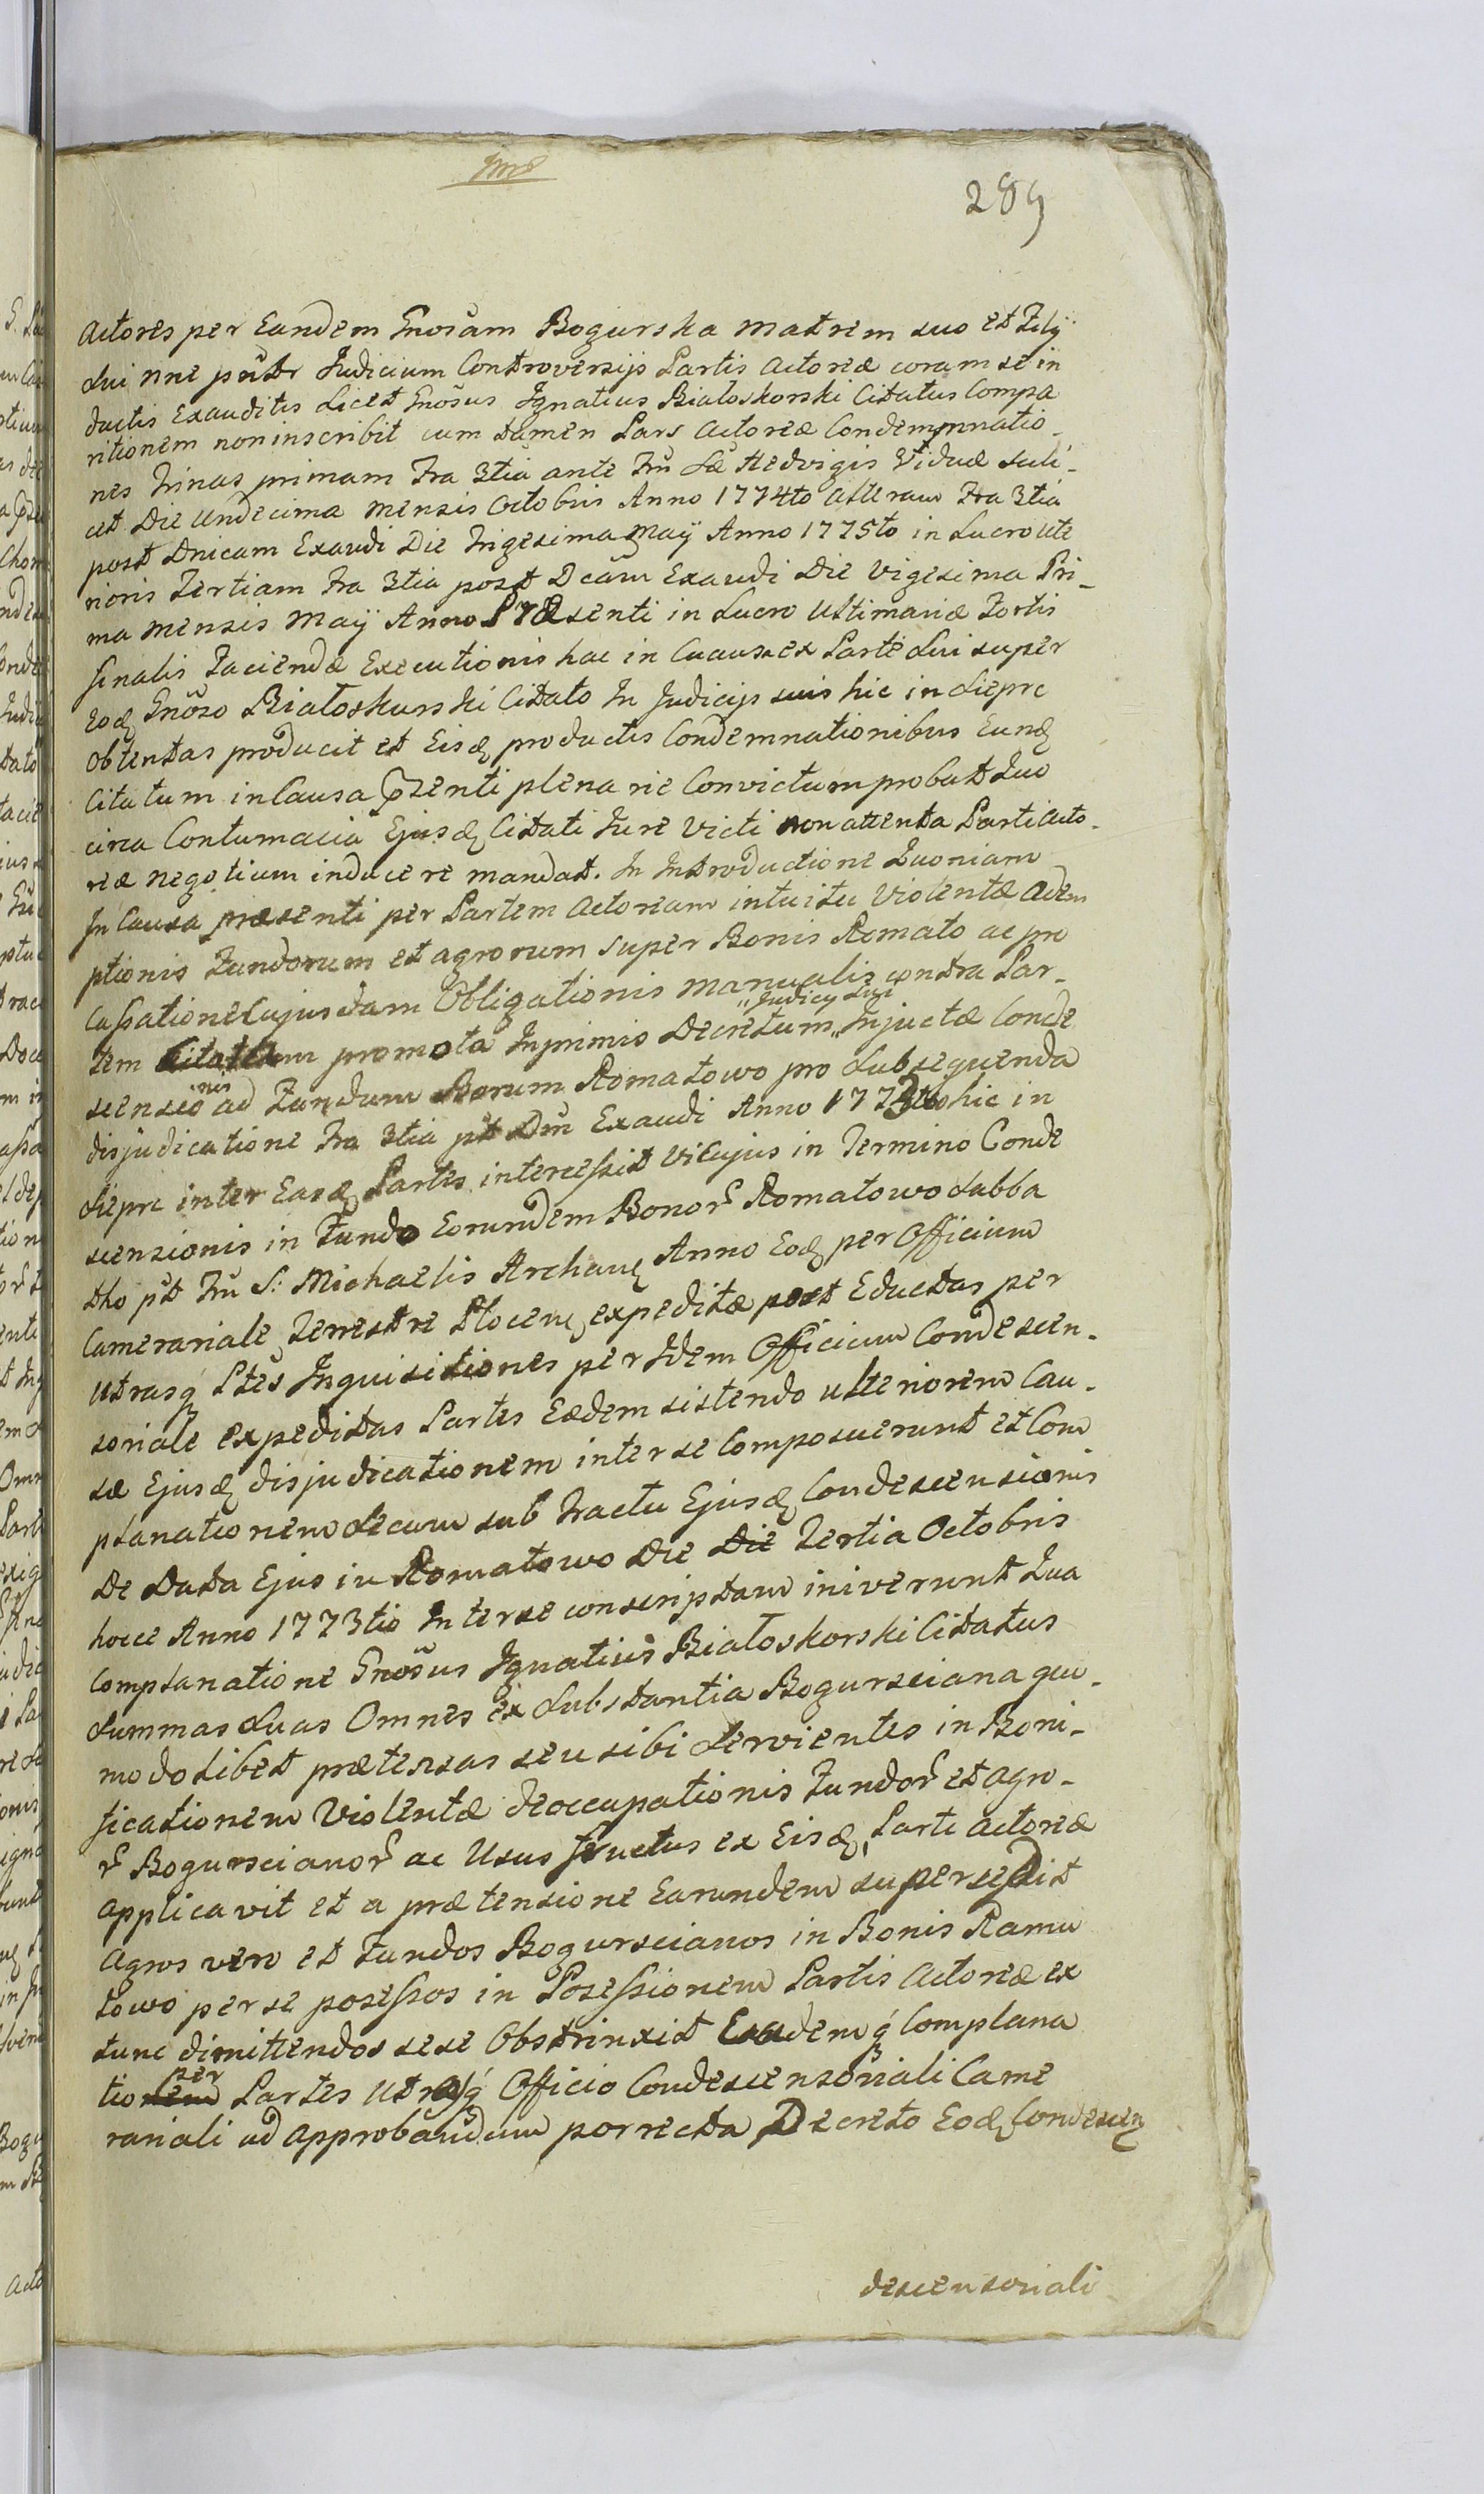 289
Actores per Eundem Gnosam Bogurska matrem suo et Filij
Sui nne pnttr Judicium Controversijs Partis Actoreæ coram se in
ductis Exauditis Licet Gnõsus Ignatius Białoskorski Citatus Compa
ritionem non inscribit cum tamen Pars Actoreæ Condemnnatio-
nes trinas primam Fra 3tia ante Fm Sæ Hedvigis Viduæ scili-
cet Die Undecima mensis Octobris Anno 1774to alteram Fra 3tia
post Dnicam Exaudi Die Trigesima Maÿ Anno 1775to in Lucro Ulte
rioris Tertiam Fra 3tia post Dcam Exaudi Die Vigesima Pri-
ma mensis Maÿ Anno Præsenti in Lucro Ultimariæ Fortis
finalis Faciendæ Executionis hac in Cuausa ex Parte Sui super
Eod Gnõso Białoskurski Citato In Judicijs suis hic in Siepre
Obtentas producit et Eisd productis Condemnationibus Eund
Citatum in Causa pzenti plenarie Convictum probat Quo
circa Contumacia Ejusd Citati Jure Victi non attenta Parti Acto-
reæ negotium inducere mandat. In Introductione Quoniam
In Causa præsenti per Partem Actoream intuitu Violentæ Adem
ptionis Fundorum et agrorum super Bonis Romato ac pro
Cassatione Cujusdam Obligationis manualis contra Par-
tem Citatam promota Inprimis Decretum "Judicÿ Sui" Injuctæ Conde
scensionis ad Fundum Borum Romatowo pro Subsequenda
disjudicatione Fra 3tia pt Dm Exaudi Anno 1773tio hic in
Siepre inter Easd Partes intercessit Vi Cujus in Termino Conde
scensionis in Fundo Eorundem Bonor Romatowo Sabba
tho pt Fm S: Michaelis Archan Anno Eod per Officium
Camerariale Terrestre Plocen expeditæ post Eductas per
Utrasq Ptes Inquisitiones per Idem Officium Condescen-
soriale expeditas Partes Eædem sistendo ulteriorem Cau-
sæ Ejusd disjudicationem inter se Composuerunt et Com
planationem Secum sub Tractu Ejusd Condescensionis
De Data Ejus in Romatowo Die Die Tertia Octobris
hocce Anno 1773tio Inter se conscriptam iniverunt Qua
Complanatione Gnosus Ignatius Białoskorski Citatus
Summas Suas Omnes ex Substantia Bogursciana quo-
modolibet prætensas seu sibi Servientes in Boni-
ficationem Violentæ deoccupationis Fundor et agro-
r Bogurscianor ac Usus fructus ex Eisd Parti Actoreæ
applicavit et a prætensione Earundem supersedit
Agros vero et Fundos Bogurscianos in Bonis Ramu
towo per se posessos in Posessionem Partis Actoreæ ex
tunc dimittendos sese Obstrinxit Eademq Complana
tionem per Partes Utrasq Officio Condescensoriali Came
rariali ad Approbandum porrecta Decreto Eod Condescen
descensoriali